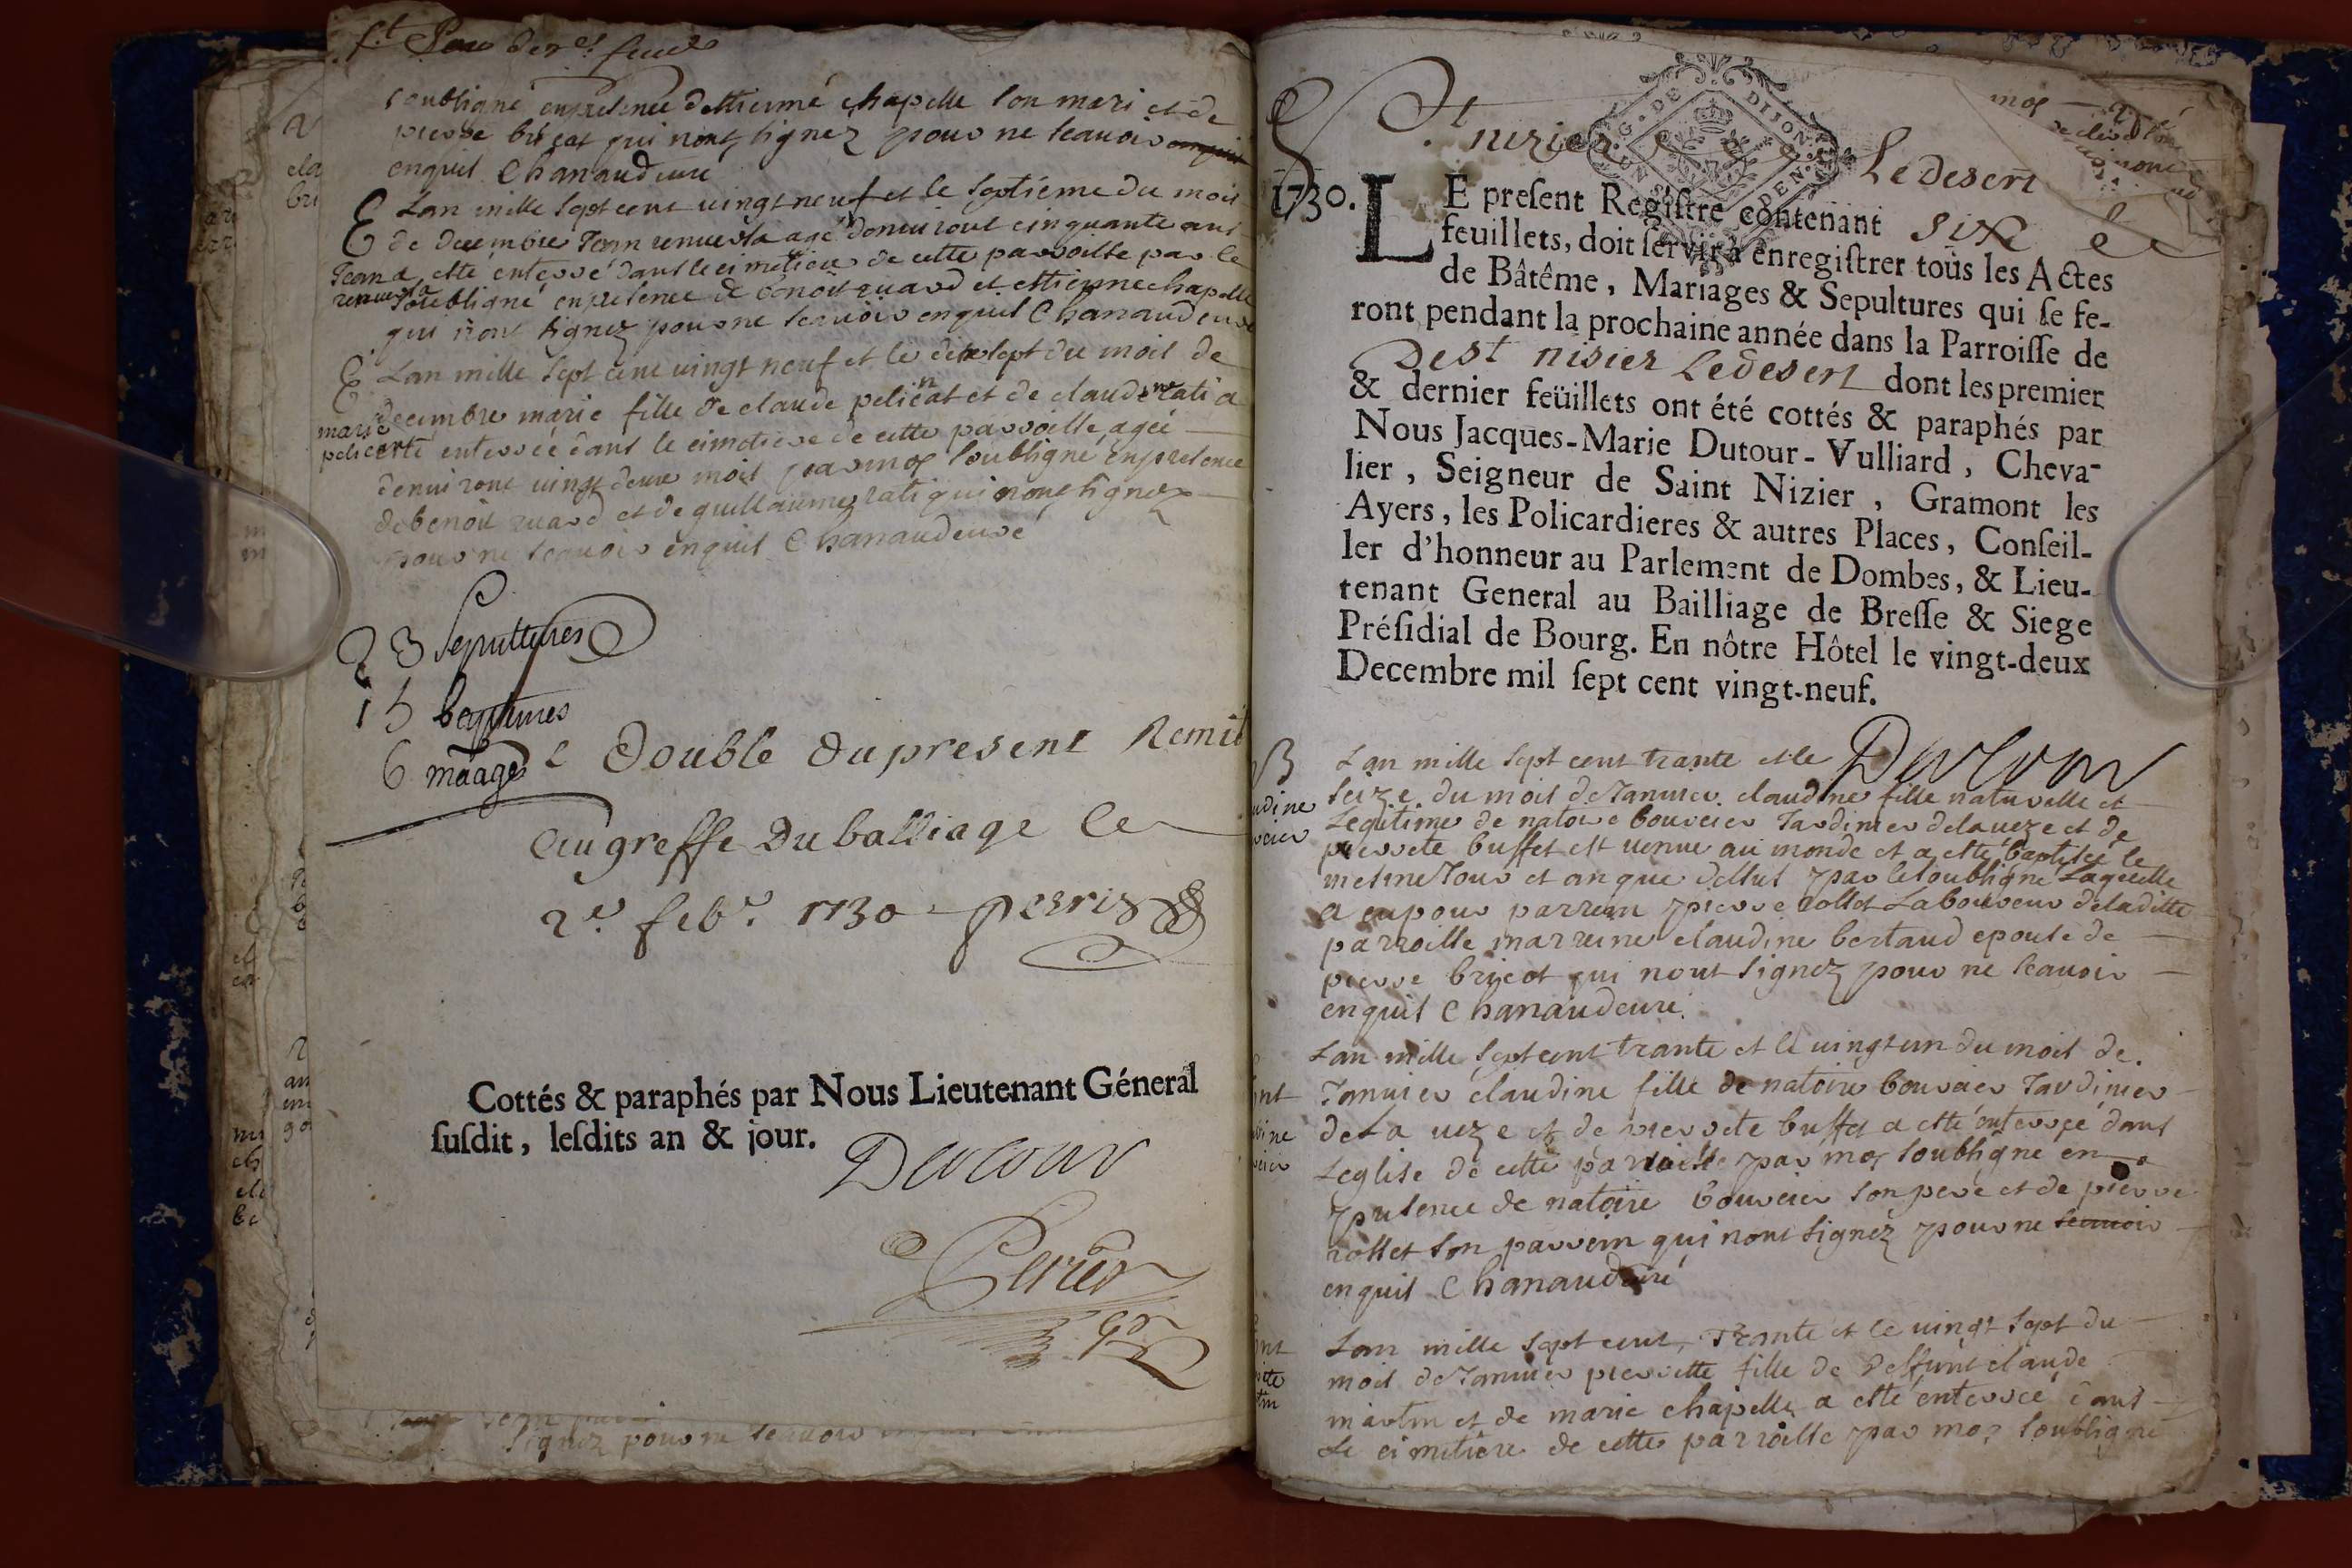 soubsigné en presence dettienne chapelle son mari et de
pierre bricat qui nont signez pour ne scavoir
enquis Chanaud curé
E Lan mille sept cent vingt neuf et le septieme du mois
de decembre Jean renuer agé denviront cinquante ans
Jean a esté enterré dans le cimetiere de cette parroisse par le
soubsigné en presence de benoit ruard et ettienne chapelle
qui nont signez pour ne scavoir enquis Chanaud curé
E Lan mille sept cent vingt neuf et le dix sept du mois de
decembre marie fille de claude pelicat et de claudine rati a
marie
esté enterrée dans le cimetiere de cette parroisse, agée
denviront vingt deux mois par moy soubsigné en presence
de benoit ruard et de guillaume rati qui nont signez
pour ne scavoir enquis Chanaud curé
23 sepultures
15 baptemes
6 mãages
Le Double du present Remis
Au greffe Du balliage le
2e. feb. 1730 perrier
Cottés & paraphés par Nous Lieutenant Géneral
susdit, lesdits an & jour.
Ducour
Perrier
St nizier Le desert
G. DE DIJON
1730.
LE present Registre contenant six
feuillets, doit servir à enregistrer tous les Actes
de Bâtême, Mariages & Sepultures qui se fe-
ront pendant la prochaine année dans la Parroisse de
De st nisier Le desert dont les premier
& dernier feüillets ont été cottés & paraphés par
Nous Jacques-Marie Dutour-Vulliard, Cheva-
lier, Seigneur de Saint Nizier, Gramont les
Ayers, les Policardieres & autres Places, Conseil-
ler d'honneur au Parlement de Dombes, & Lieu-
tenant General au Bailliage de Bresse & Siege
Présidial de Bourg. En nôtre Hôtel le vingt-deux
Decembre mil sept cent vingt-neuf.
Ducour
B Lan mille sept cent trante et le
seize du mois de Janvier claudine fille naturelle et
Legitime de natoire bouvcier Jardinier delaveze et de
pierrete buffet est venue au monde et a esté baptisée le
mesme Jour et an que dessus par le soubsigné Laquelle
a eu pour parrein pierre rollet Laboureur de laditte
parroisse marreine claudine bertaud epouse de
pierre bricat qui nont signez pour ne scavoir
enquis Chanaud curé
Lan mille sept cent trante et le vingt un du mois de
Janvier claudine fille de natoire bouvcier Jardinier
de La veze et de pierrete buffet a esté enterrée dans
Leglise de cette parroisse par moy soubsigné en
presence de natoire bouvcier son pere et de pierre
rollet son parrein qui nont signez pour ne scavoir
enquis Chanaud curé
Lan mille sept cent trante et le vingt sept du
mois de Janvier pierrette fille de deffunt claude
martin et de marie chapelle a esté enterrée dans
Le cimetiere de cette parroisse par moy soubsigné